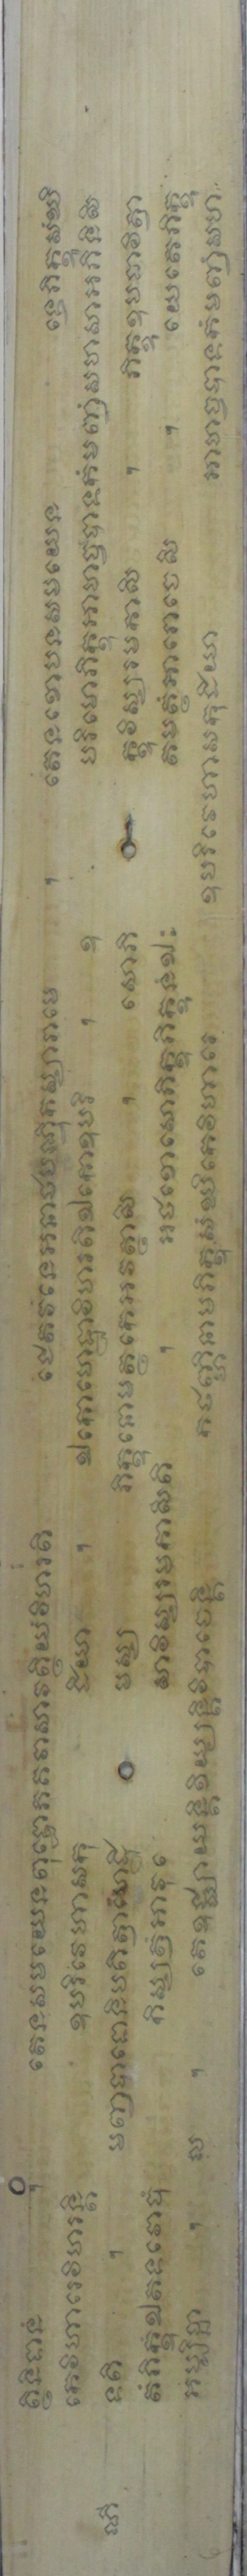 ត្តិនិទានំ ។ តេនសមយេនពុទ្ធោភគវាសាវត្ថិយំវិហរតិ ជេតវនេអនាថបិណ្ឌិកស្សារាមេ ។ តេនខោបនសមយេន ទ្វេភិក្ខូសំឃិ
កេវិហារេវិហរន្តិ ឧបរិវេហាសកុ ដិយា ។ ឯកោហេដ្ឋាវិហរតិឯកោឧបរិ ។ ឧ បរិមោភិក្ខុអាហច្ចបាទកំមញ្ចំសហសាអភិនិសិ
ទតិ ។ មញ្ចបាទោនិបតិត្វាហេដ្ឋិ មស្ស ភិក្ខុនោមត្ថកេអវត្ថាសិ ។ សោភិ ក្ខុវិស្សរមកាសិ ។ ភិក្ខូឧបធាវិត្វា
តំភិក្ខុំឯតទវោចុំ កិស្សត្វំអាវុ សោវិស្សរមកាសិតិ ។ អថខោសោភិក្ខុភិក្ខូនំឯ តមត្ថំអារោចេសិ ។ យេតេភិក្ខូ
អប្បិច្ឆា ។ ល ។ តេឧជ្ឈាយន្តិខិយ្យន្តិវិបាចេន្តិ កថញ្ហិនាមភិក្ខុសំឃិកេវិហារេ ឧបរិវេហាសកុដិយា អាហច្ចបាទកំមញ្ចំសហ